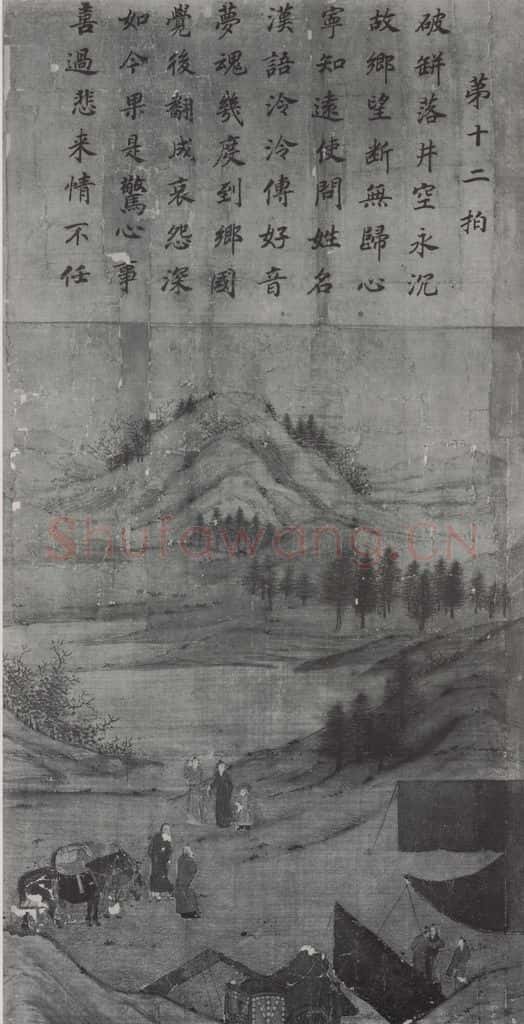 第十二拍
破缾落井空永沉
故鄉望断無歸心
寧知遠使問姓名
漢語泠泠傳好音
夢魂幾度到鄉國
覺後翻成哀怨深
如今果是驚心事
喜過悲来情不任
Shufawang.CN